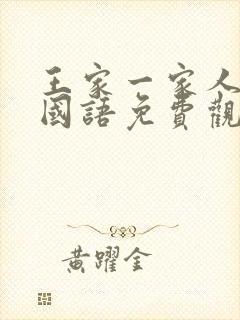 王家一家人
國語免費觀
黃躍金